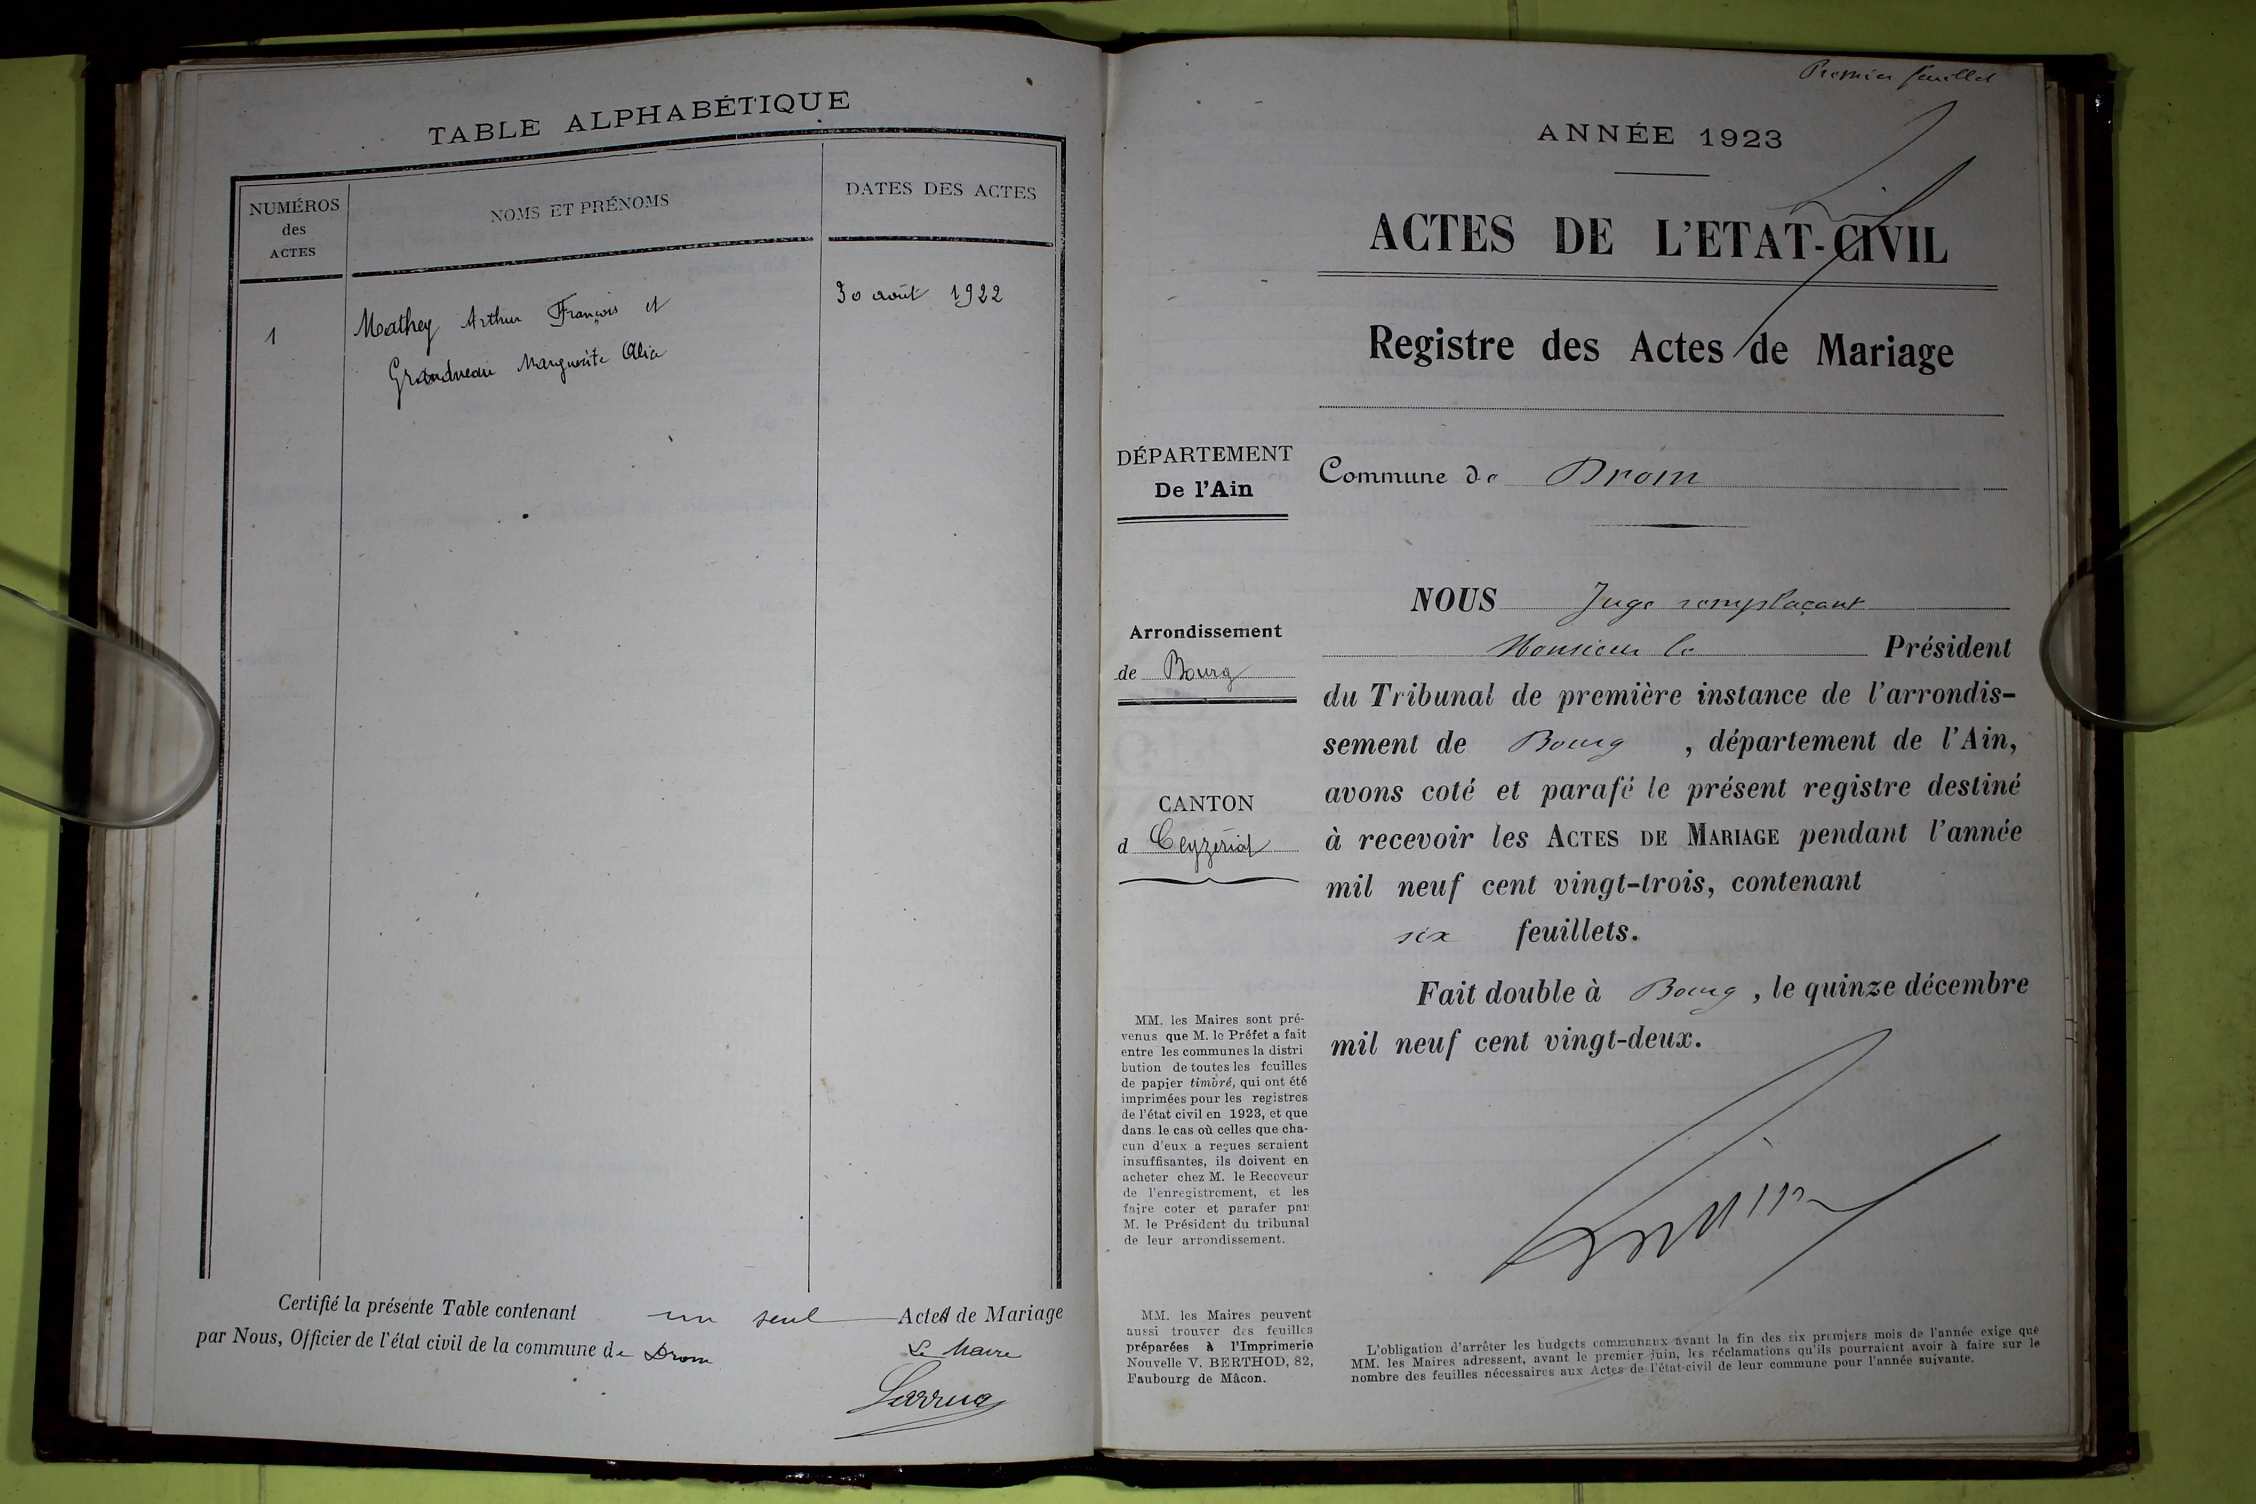 TABLE ALPHABÉTIQUE
NUMÉROS
des
ACTES
NOMS ET PRÉNOMS
DATES DES ACTES
1
Mathey Arthur François et
30 août 1922
Marguerite
Certifié la présente Table contenant un seul Actes de Mariage
par Nous, Officier de l'état civil de la commune de Drom
Le Maire
Premier feuillet
ANNÉE 1923
ACTES DE L'ETAT-CIVIL
Registre des Actes de Mariage
DÉPARTEMENT
De l'Ain
Commune de Drom
Arrondissement
de Bourg
CANTON
d Ceyzériat
NOUS Juge remplaçant
Monsieur le Président
du Tribunal de première instance de l'arrondis-
sement de Bourg, département de l'Ain,
avons coté et parafé le présent registre destiné
à recevoir les ACTES DE MARIAGE pendant l'année
mil neuf cent vingt-trois, contenant
six feuillets.
Fait double à Bourg, le quinze décembre
mil neuf cent vingt-deux.
MM. les Maires sont pré-
venus que M. le Préfet a fait
entre les communes la distri
bution de toutes les feuilles
de papier timbré, qui ont été
imprimées pour les registres
de l'état civil en 1923, et que
dans le cas où celles que cha-
cun d'eux a reçues seraient
insuffisantes, ils doivent en
acheter chez M. le Receveur
de l'enregistrement, et les
faire coter et parafer par
M. le Président du tribunal
de leur arrondissement.
MM. les Maires peuvent
aussi trouver des feuilles
préparées à l'Imprimerie
Nouvelle V. BERTHOD, 82,
Faubourg de Mâcon.
L'obligation d'arrêter les budgets communaux avant la fin des six premiers mois de l'année exige que
MM. les Maires adressent, avant le premier juin, les réclamations qu'ils pourraient avoir à faire sur le
nombre des feuilles nécessaires aux Actes de l'état-civil de leur commune pour l'année suivante.